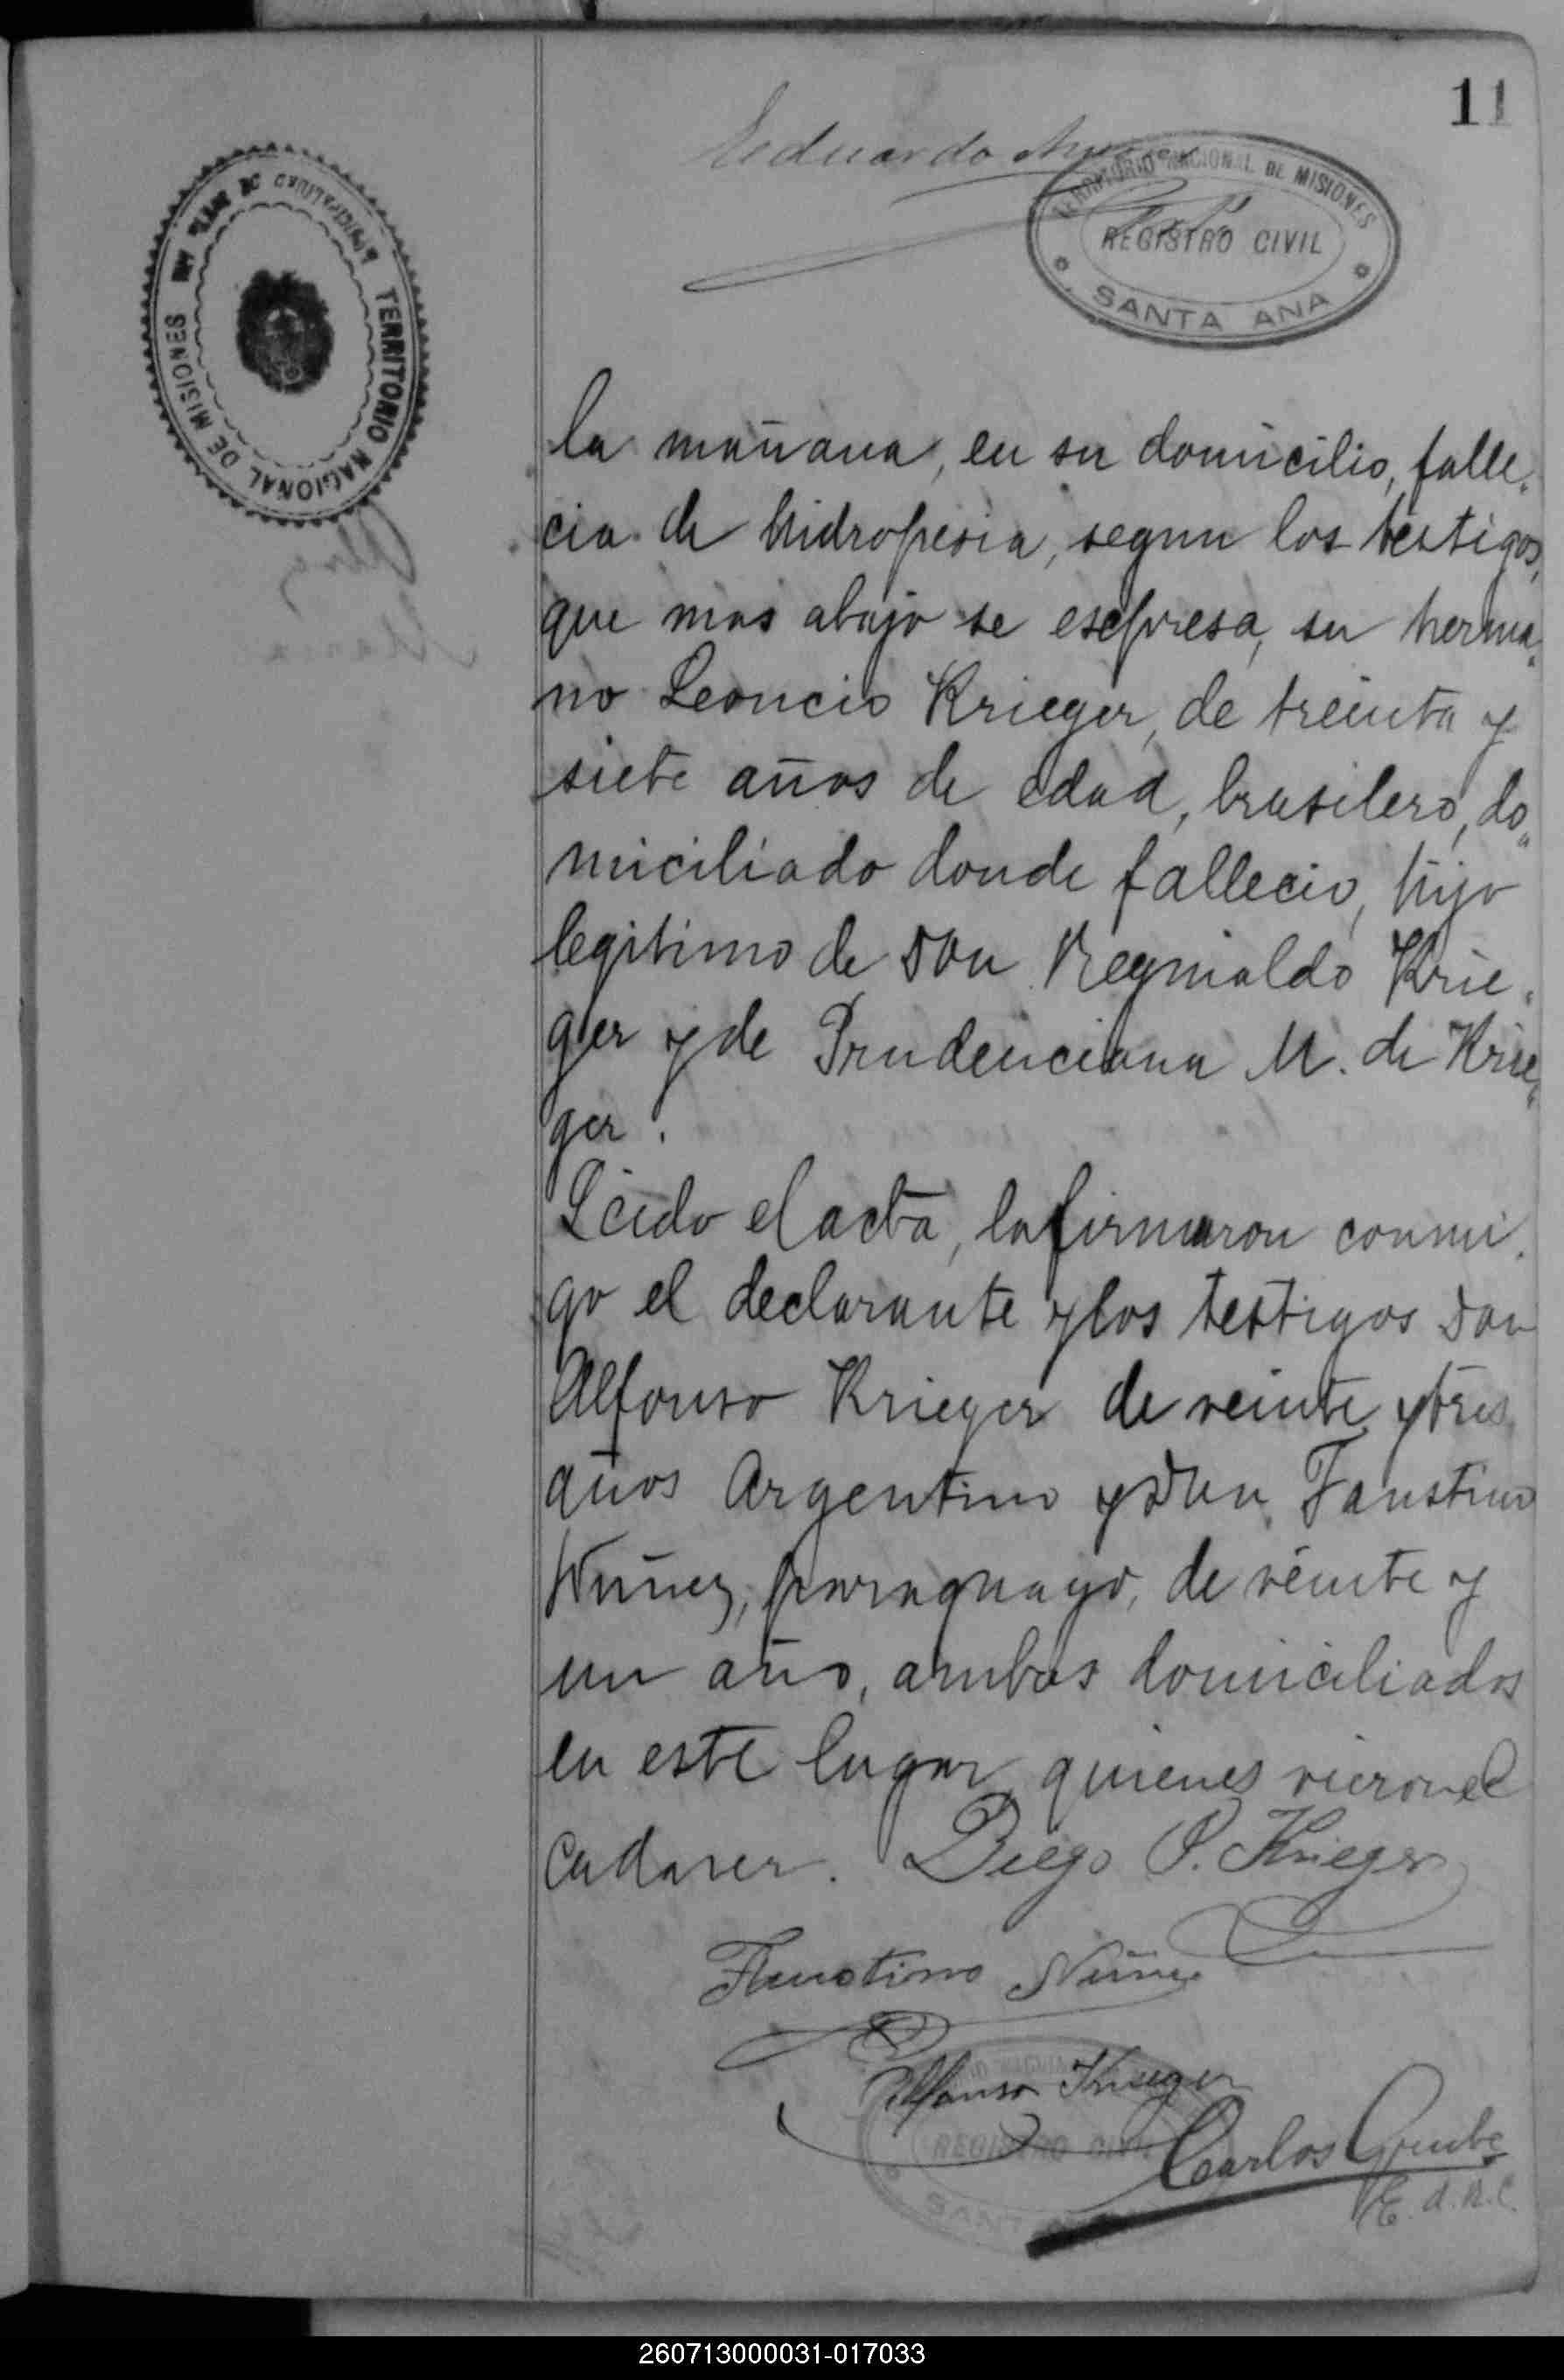 11
Eduardo
TERRITORIO NACIONAL DE MISIONES
REGISTRO CIVIL
SANTA ANA
TERRITORIO NACIONAL DE MISIONES
la mañana, en su domicilio, falle-
cia de hidropesia, segun los testigos,
que mas abajo se esspresa, su herma-
no Leoncio Krieger, de treinta y
siete años de edad, brasilero, do-
miciliado donde fallecio, hijo
legitimo de Don Reginaldo Krie-
ger y de Prudenciana M. de Krie-
ger.
Leido el acta, la firmaron conmi-
go el declarante y los testigos Don
Alfonso Krieger de veinte y tres
años Argentino y Don Faustino
Nuñez, paraguayo, de veinte y
un año, ambos domiciliados
en este lugar, quienes vieron el
cadaver. Diego P. Krieger
Faustino Nuñez
Alfonso Krieger
REGISTRO CIVIL
SANTA ANA
Carlos
E. d. R. C.
260713000031-017033